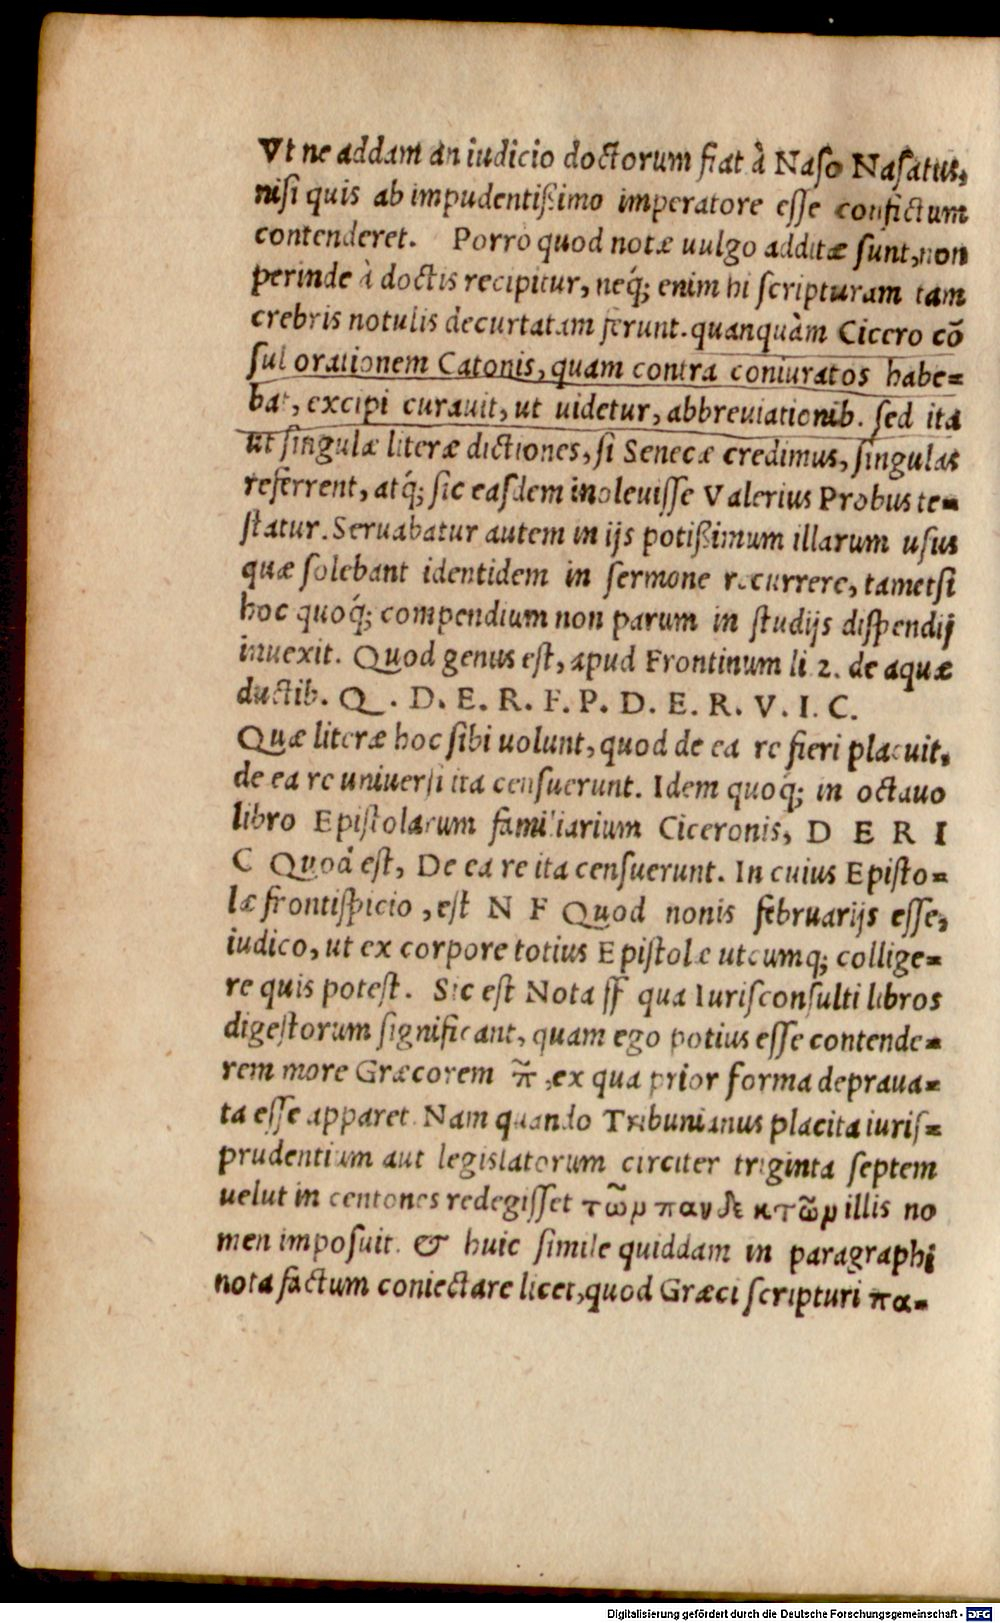 Vt ne addam an iudicio doctorum fiat à Naso Nasatus,
nisi quis ab impudentißimo imperatore esse confictum
contenderet. Porrò quod notæ uulgo additæ sunt, non
perinde à doctis recipitur, neq́; enim hi scripturam tam
crebris notulis decurtatam ferunt. quanquàm Cicero cō
sul orationem Catonis, quam contra coniuratos habe=
bat, excipi curauit, ut uidetur, abbreuiationib. sed ita
ut singulæ literæ dictiones, si Senecæ credimus, singulas
referrent, atq́; sic easdem inoleuisse Valerius Probus te=
statur. Seruabatur autem in ijs potißimum illarum usus
quæ solebant identidem in sermone recurrere, tametsi
hoc quoq́; compendium non parum in studijs dispendij
inuexit. Quod genus est, apud Frontinum li 2. de aquæ
ductib. Q. D. E. R. F. P. D. E. R. V. I. C.
Quæ literæ hoc sibi uolunt, quod de ea re fieri placuit,
de ea re uniuersi ita censuerunt. Idem quoq́; in octauo
libro Epistolarum familiarium Ciceronis, D E R I
C Quod est, De ea re ita censuerunt. In cuius Episto=
læ frontispicio, est N F Quod nonis februarijs esse,
iudico, ut ex corpore totius Epistolæ utcumq; collige=
re quis potest. Sic est Nota ff qua Iurisconsulti libros
digestorum significant, quam ego potius esse contende=
rem more Græcorem π̃, ex qua prior forma depraua=
ta esse apparet. Nam quando Tribunianus placita iuris=
prudentium aut legislatorum circiter triginta septem
uelut in centones redegisset τῶν πανδεκτῶν illis no
men imposuit. & huic simile quiddam in paragraphi
nota factum coniectare licet, quod Græci scripturi πα=
Digitalisierung gefördert durch die Deutsche Forschungsgemeinschaft - DFG